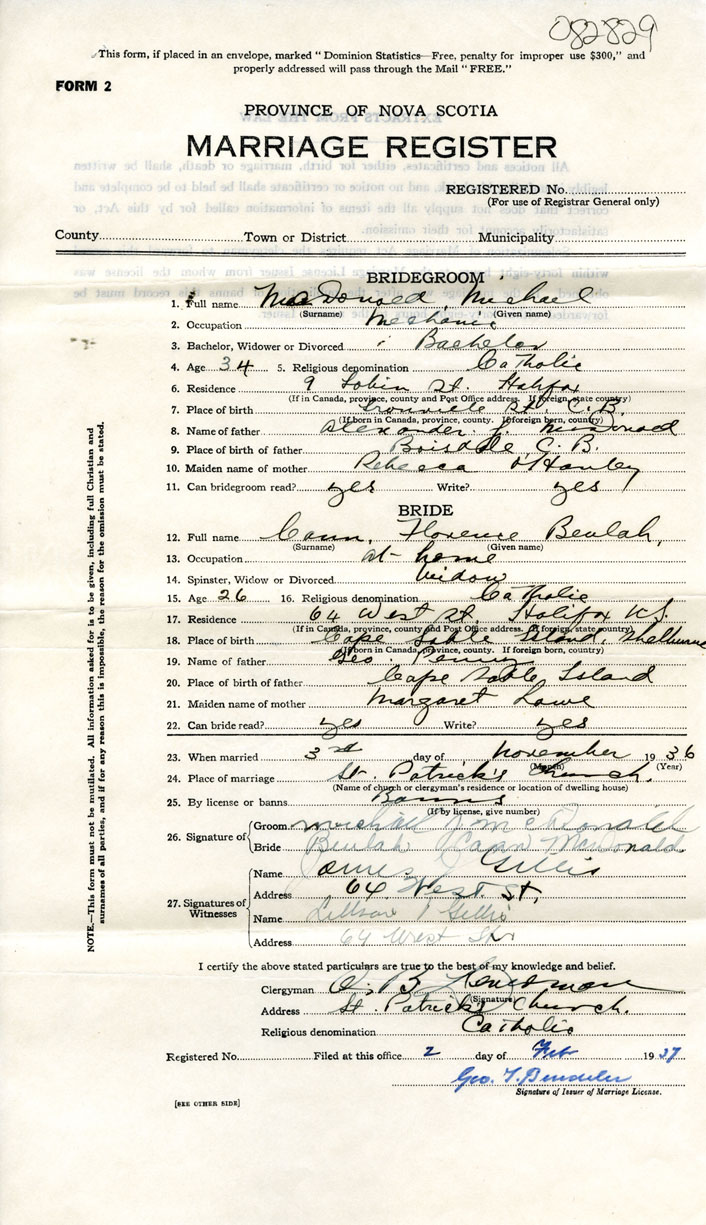 082829
This form, if placed in an envelope, marked "Dominion Statistics—Free, penalty for improper use $300," and
properly addressed will pass through the Mail "FREE."
FORM 2
PROVINCE OF NOVA SCOTIA
MARRIAGE REGISTER
REGISTERED No.
(For use of Registrar General only)
County Town or District Municipality
BRIDEGROOM
1. Full name MacDonald, Michael
(Surname) (Given name)
2. Occupation Mechanic
3. Bachelor, Widower or Divorced Bachelor
4. Age 34 5. Religious denomination Catholic
6. Residence 9 Tobin St. Halifax
(If in Canada, province, county and Post Office address. If foreign, state country)
7. Place of birth C. B.
(If born in Canada, province, county. If foreign born, country)
8. Name of father Alexander J. MacDonald
9. Place of birth of father Boisdale, C. B.
10. Maiden name of mother Rebecca O'Hanley
11. Can bridegroom read? yes Write? yes
BRIDE
12. Full name Cann, Florence Beulah,
(Surname) (Given name)
13. Occupation at-home
14. Spinster, Widow or Divorced Widow
15. Age 26 16. Religious denomination Catholic
17. Residence 64 West St. Halifax N.S
(If in Canada, province, county and Post Office address. If foreign, state country)
18. Place of birth Cape Sable Island, Shelburne
(If born in Canada, province, county. If foreign born, country)
19. Name of father Geo. Penny
20. Place of birth of father Cape Sable Island
21. Maiden name of mother Margaret Lowe
22. Can bride read? yes Write? yes
23. When married 3rd day of November 1936
(Month) (Year)
24. Place of marriage St. Patrick's Church.
(Name of church or clergyman's residence or location of dwelling house)
25. By license or banns Banns
(If by license, give number)
26. Signature of Groom Michael McDonald
Bride Beulah Cann Macdonald
27. Signatures of Witnesses Name James Gillis
Address 64 West. St,
Name Gillis
Address 64 West St
I certify the above stated particulars are true to the best of my knowledge and belief.
Clergyman
(Signature)
Address St. Patrick's Church.
Religious denomination Catholic
Registered No. Filed at this office 2 day of Feb 1937
Geo. T.
Signature of Issuer of Marriage License.
[SEE OTHER SIDE]
NOTE.—This form must not be mutilated. All information asked for is to be given, including full Christian and
surnames of all parties, and if for any reason this is impossible, the reason for the omission must be stated.